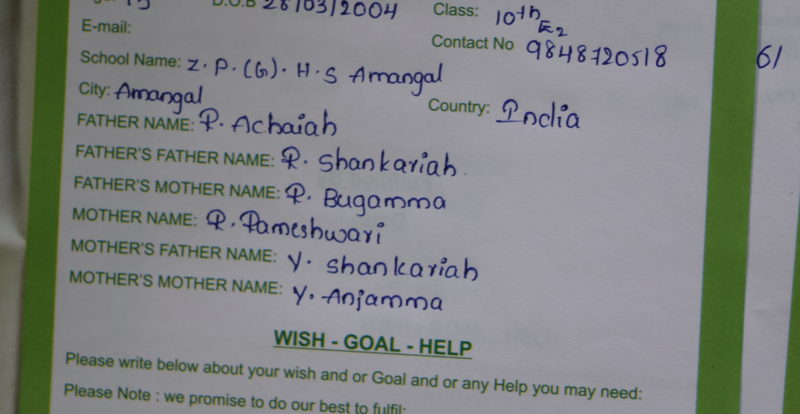 D.O.B 28/03/2004 Class: 10th E2
E-mail:
Contact No 9848720518
School Name: Z.P.(G).H.S Amangal
City: Amangal Country: India
FATHER NAME: P. Achaiah
FATHER'S FATHER NAME: P. Shankariah
FATHER'S MOTHER NAME: P. Bugamma
MOTHER NAME: P. Pameshwari
MOTHER'S FATHER NAME: Y. Shankariah
MOTHER'S MOTHER NAME: Y. Anjamma
WISH - GOAL - HELP
Please write below about your wish and or Goal and or any Help you may need:
Please Note : we promise to do our best to fulfil: